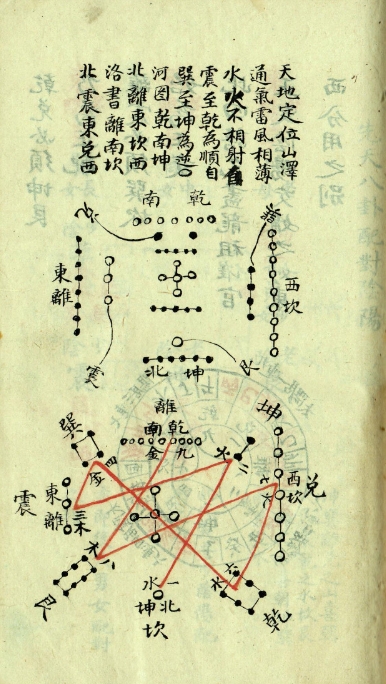 天地定位山澤
通氣雷風相薄
水火不相射自
震至乾為順自
巽至坤為逆○
河圖乾南坤
北離東坎西
洛書離南坎
北震東兌西
乾
南
西坎
東離
震
艮
坤
北
離
乾
南
九
金
巽
四
金
坤
火
二
兌
西坎
七火
東離
三木
震
八
木
艮
六
水
乾
一
水
北
坤
坎